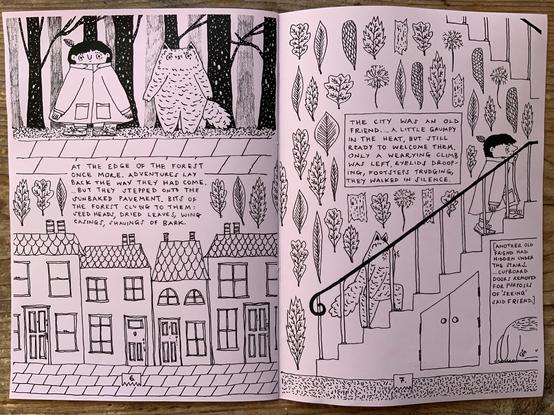 AT THE EDGE OF THE FOREST
ONCE MORE. ADVENTURES LAY
BACK THE WAY THEY HAD COME.
...BUT THEY STEPPED ONTO THE
SUNBAKED PAVEMENT. BITS OF
THE FOREST CLUNG TO THEM:
SEED HEADS, DRIED LEAVES, WING
CASINGS, SHAVINGS OF BARK.
6.
THE CITY WAS AN OLD
FRIEND... A LITTLE GRUMPY
IN THE HEAT, BUT STILL
READY TO WELCOME THEM.
ONLY A WEARYING CLIMB
WAS LEFT. EYELIDS DROOP-
ING, FOOTSTEPS TRUDGING,
THEY WALKED IN SILENCE.
[ANOTHER OLD
FRIEND HAD
HIDDEN UNDER
THE STAIRS.
...CUPBOARD
DOORS REMOVED
FOR PURPOSES
OF 'SEEING'
SAID FRIEND.]
7.